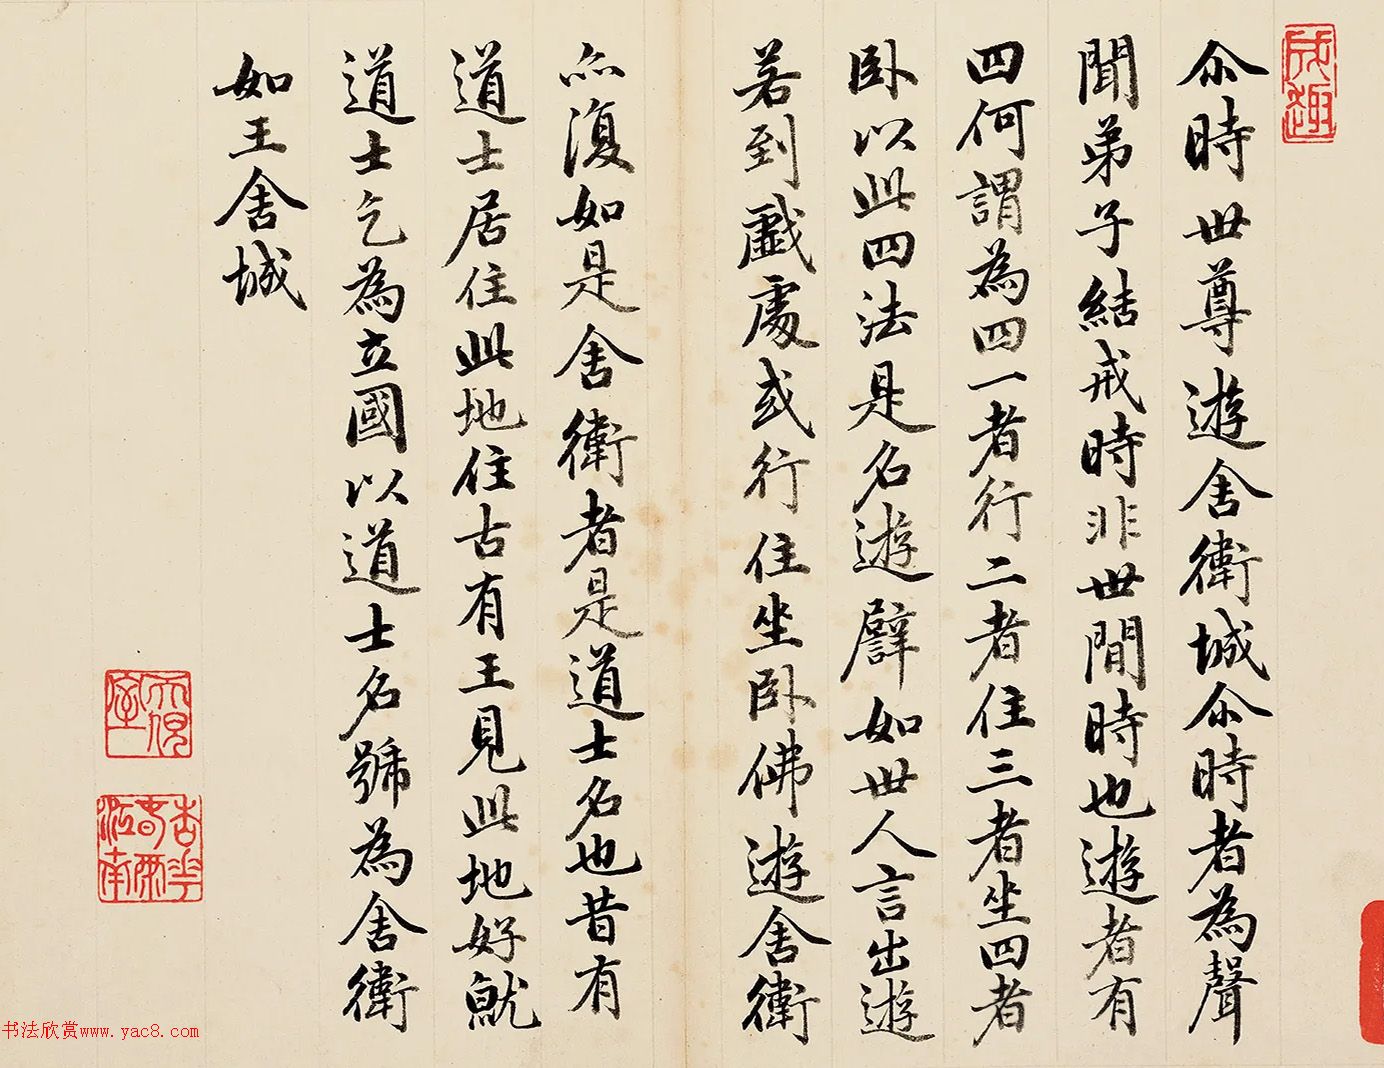 成趣
尒時世尊遊舍衛城尒時者為聲
聞弟子結戒時非世間時也遊者有
四何謂為四一者行二者住三者坐四者
卧以此四法是名遊譬如世人言出遊
若到戲處或行住坐卧佛遊舍衛
亦復如是舍衛者是道士名也昔有
道士居住此地住古有王見此地好就
道士乞為立國以道士名號為舍衛
如王舍城
杏花春雨江南
书法欣赏www.yac8.com